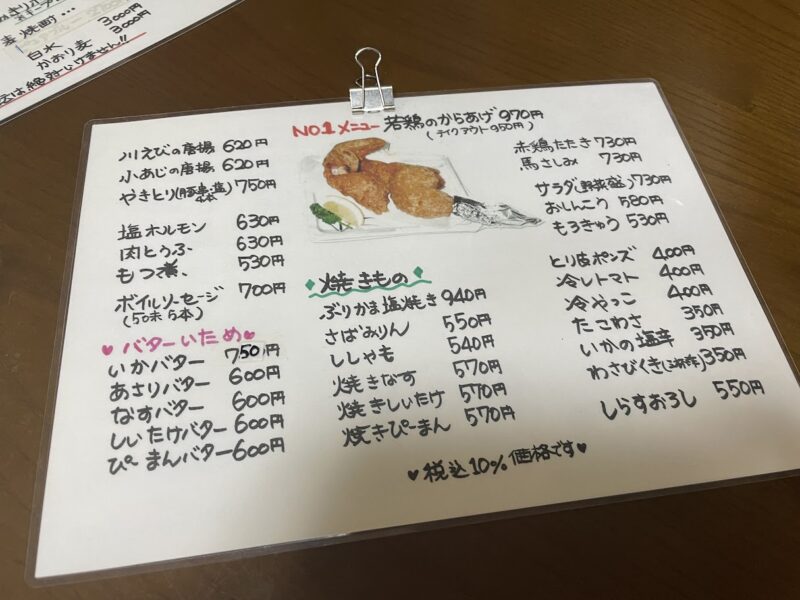 麦焼酎…
白水 3,000円
かおり麦 3,000円
NO.1メニュー 若鶏のからあげ 970円
(テイクアウト 950円)
川えびの唐揚 620円
小あじの唐揚 620円
やきとり 750円
4本
塩ホルモン 630円
肉とうふ 630円
もつ煮 530円
ボイルソーセージ 700円
♥バターいため♥
いかバター 750円
あさりバター 600円
なすバター 600円
しいたけバター 600円
ぴーまんバター 600円
◆焼きもの◆
ぶりかま塩焼き 940円
さばみりん 550円
ししゃも 540円
焼きなす 570円
焼きしいたけ 570円
焼きぴーまん 570円
赤鶏たたき 730円
馬さしみ 730円
サラダ(野菜盛) 730円
おしんこう 580円
もろきゅう 530円
とり皮ポンズ 400円
冷しトマト 400円
冷やっこ 400円
たこわさ 350円
いかの塩辛 350円
わさびくき 350円
しらすおろし 550円
♥税込10%価格です♥